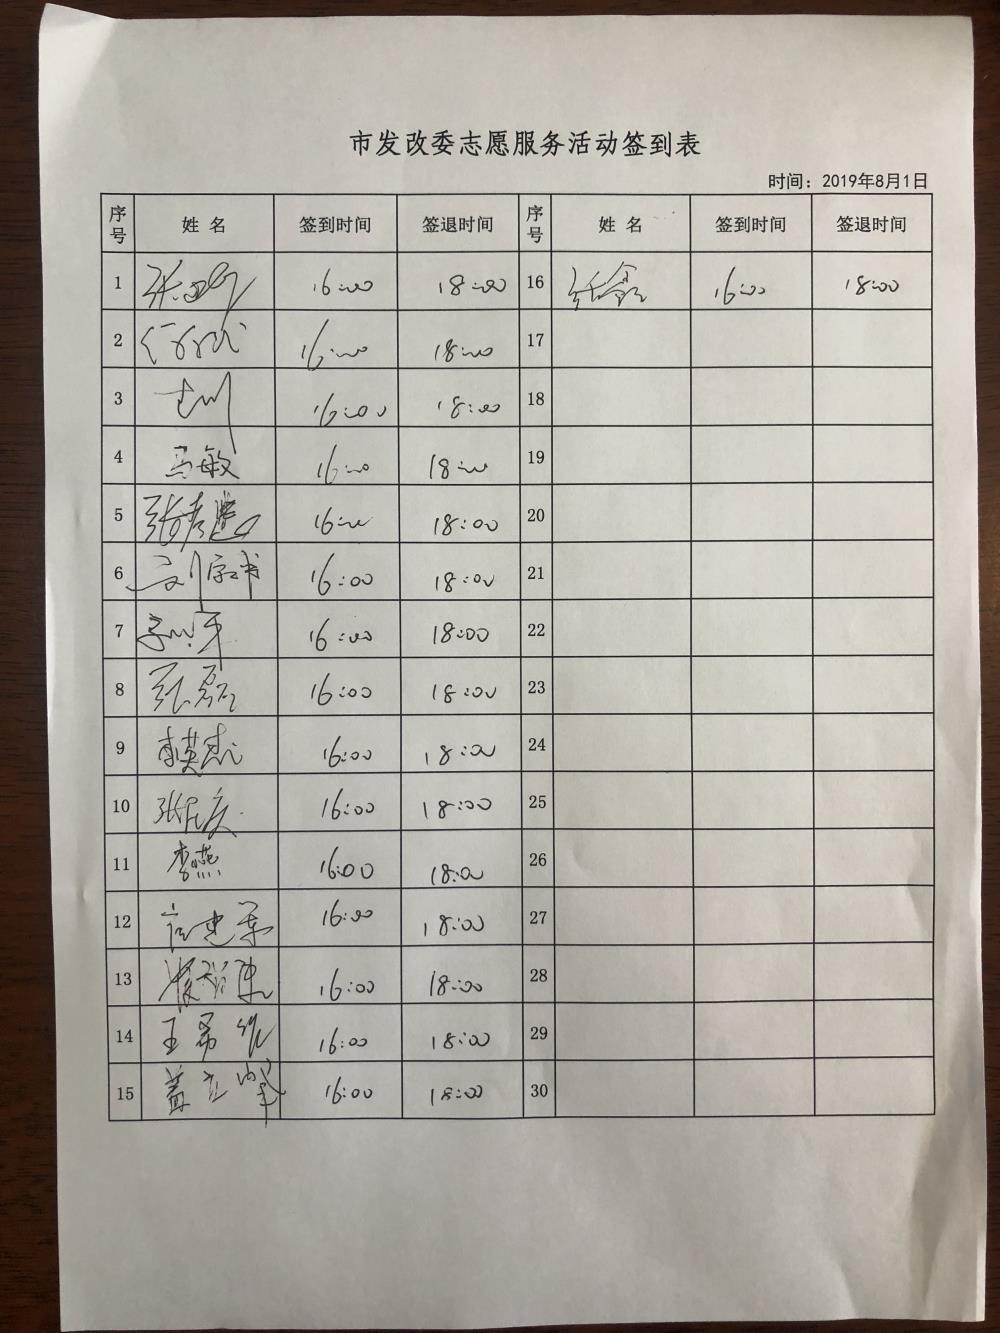 市发改委志愿服务活动签到表
时间：2019年8月1日
序号 姓名 签到时间 签退时间 序号 姓名 签到时间 签退时间
1 16:00 18:00 16 16:00 18:00
2 16:00 18:00 17
3 16:00 18:00 18
4 马敏 16:00 18:00 19
5 16:00 18:00 20
6 16:00 18:00 21
7 16:00 18:00 22
8 张磊 16:00 18:00 23
9 李英杰 16:00 18:00 24
10 16:00 18:00 25
11 李燕 16:00 18:00 26
12 16:00 18:00 27
13 16:00 18:00 28
14 16:00 18:00 29
15 盖立峰 16:00 18:00 30